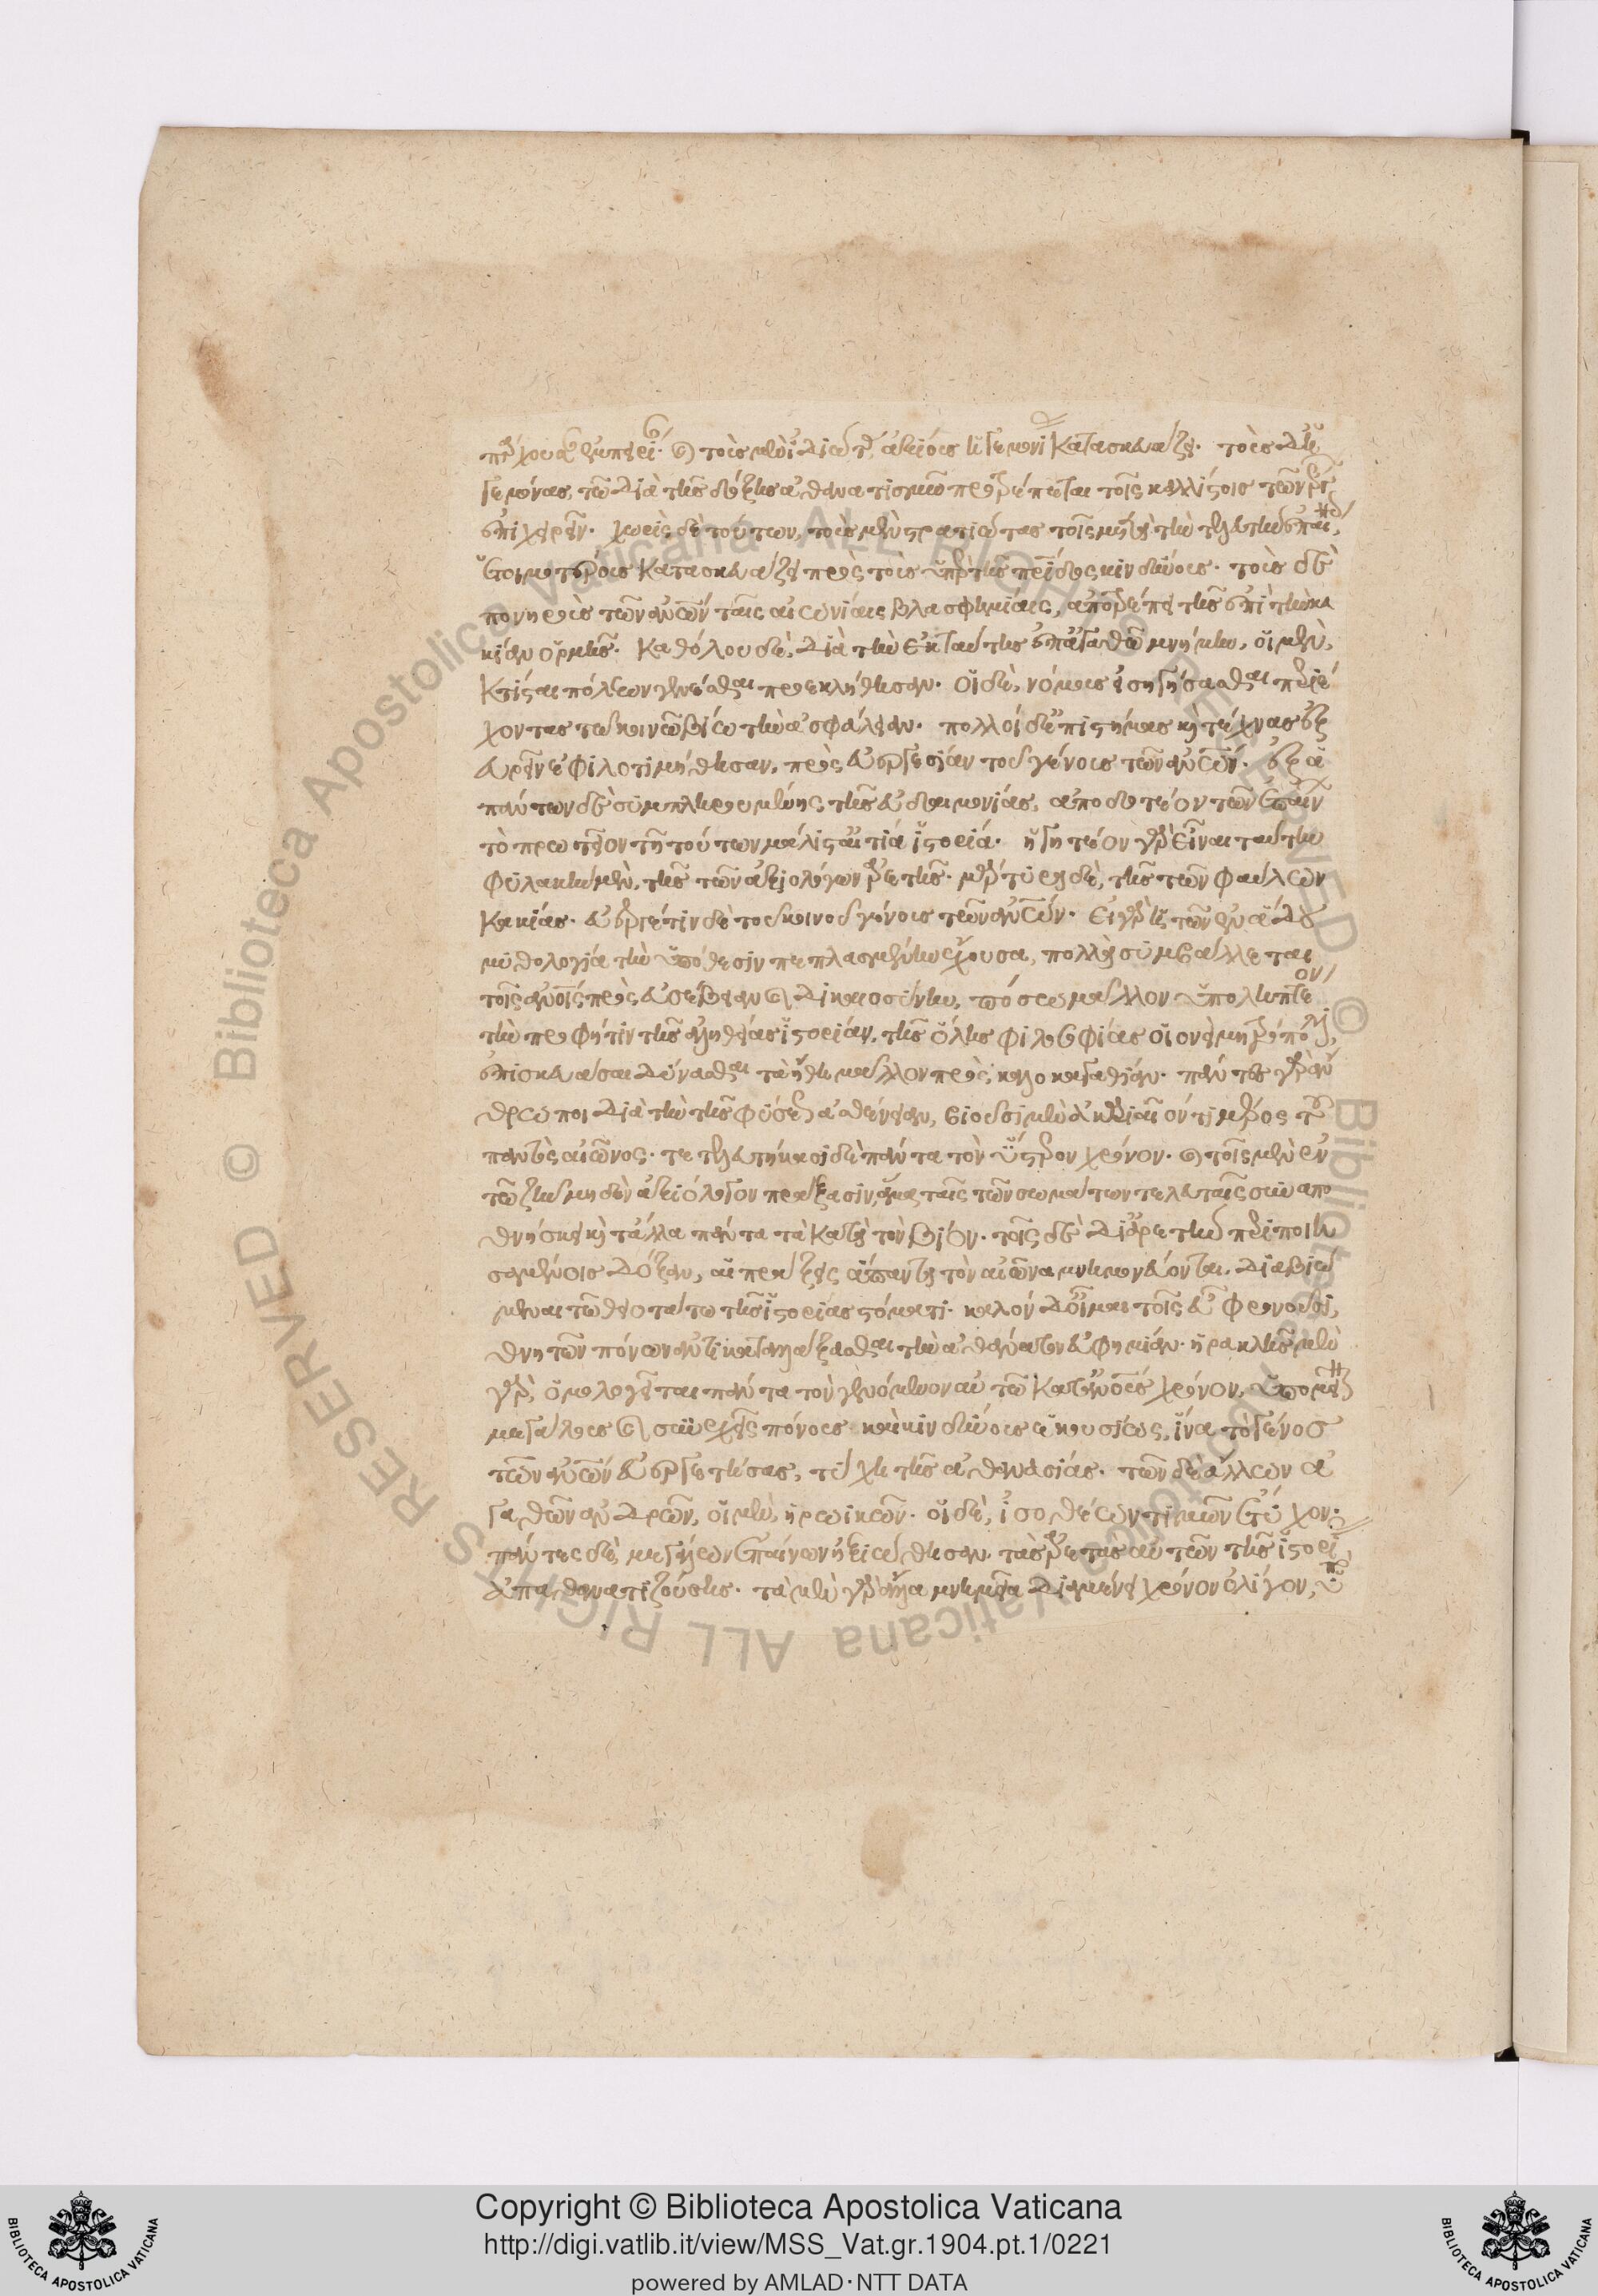 τοὺς μὲν ἰδιώτας ἀξίους ἡγεμονίας κατασκευάζει. τοὺς δ' ἡ
γεμόνας, τῶ διὰ τῆς δόξης ἀθανατισμῶ προτρέπεται τοῖς καλλίστοις τῶν ἔργων
ἐπιχειρεῖν. χωρὶς δὲ τούτων, τοὺς μὲν στρατιώτας τοῖς μετὰ τὴν τελευτὴν ἐπαί
νοις ἑτοιμοτέρους κατασκευάζει πρὸς τοὺς ὑπὲρ τῆς πατρίδος κινδύνους. τοὺς δὲ
πονηροὺς τῶν ἀνθρώπων ταῖς αἰωνίαις βλασφημίαις, ἀποτρέπει τῆς ἐπὶ τὴν κα
κίαν ὁρμῆς. καθόλου δὲ, διὰ τὴν ἐκ ταύτης ἐπ' ἀγαθῶ μνήμην, οἱ μὲν,
κτίσται πόλεων γενέσθαι προεκλήθησαν. οἱ δὲ, νόμους εἰσηγήσασθαι περιέ
χοντας τῶ κοινῶ βίω τὴν ἀσφάλειαν. πολλοὶ δ' ἐπιστήμας καὶ τέχνας ἐξ
ευρεῖν ἐφιλοτιμήθησαν, πρὸς εὐεργεσίαν τοῦ γένους τῶν ἀνθρώπων. ἐξ ἁ
πάντων δὲ συμπληρουμένης τῆς εὐδαιμονίας, ἀποδοτέον τῶν ἐπαίνων
τὸ πρωτεῖον τῆ τούτων μάλιστ' αἰτία ἱστορία. ἡγητέον γὰρ εἶναι ταύτην
φύλακα μὲν, τῆς τῶν ἀξιολόγων ἀρετῆς. μάρτυρα δὲ, τῆς τῶν φαύλων
κακίας. εὐεργέτιν δὲ τοῦ κοινοῦ γένους τῶν ἀνθρώπων. εἰ γὰρ ἡ τῶν ἐν ἅδου
μυθολογία τὴν ὑπόθεσιν πεπλασμένην ἔχουσα, πολλὰ συμβάλλεται
τοῖς ἀνθρώποις πρὸς εὐσέβειαν καὶ δικαιοσύνην, πόσω μᾶλλον ὑποληπτέον
τὴν προφῆτιν τῆς ἀληθείας ἱστορίαν, τῆς ὅλης φιλοσοφίας οἱονεὶ μητρόπολιν,
ἐπισκευάσαι δύνασθαι τὰ ἤθη μᾶλλον πρὸς καλοκαγαθίαν. πάντες γὰρ ἄν
θρωποι διὰ τὴν τῆς φύσεως ἀσθένειαν, βιοῦσι μὲν ἀκαριαῖόν τι μέρος τοῦ
παντὸς αἰῶνος. τετελευτήκασι δὲ πάντα τὸν ὕστερον χρόνον. καὶ τοῖς μὲν ἐν
τῶ ζῆν μηδὲν ἀξιόλογον πράξασιν, ἅμα ταῖς τῶν σωμάτων τελευταῖς συναπο
θνήσκει καὶ τἄλλα πάντα τὰ κατὰ τὸν βίον. τοῖς δὲ δι' ἀρετὴν περιποιη
σαμένοις δόξαν, αἱ πράξεις ἅπαντα τὸν αἰῶνα μνημονεύονται, διαβοώ
μεναι τῶ θειοτάτω τῆς ἱστορίας στόματι. καλὸν δ' οἶμαι τοῖς εὖ φρονοῦσι,
θνητῶν πόνων ἀντικαταλλάξασθαι τὴν ἀθάνατον εὐφημίαν. ἡρακλῆς μὲν
γὰρ, ὁμολογεῖται πάντα τὸν γενόμενον αὐτῶ κατ' ἀνθρώπους χρόνον, ὑπομεῖναι
μεγάλους καὶ συνεχεῖς πόνους καὶ κινδύνους ἑκουσίως, ἵνα τὸ γένος
τῶν ἀνθρώπων εὐεργετήσας, τύχη τῆς ἀθανασίας. τῶν δὲ ἄλλων ἀ
γαθῶν ἀνδρῶν, οἱ μὲν, ἡρωικῶν. οἱ δὲ, ἰσοθέων τιμῶν ἔτυχον.
πάντες δὲ, μεγάλων ἐπαίνων ἠξιώθησαν. τὰς ἀρετὰς αὐτῶν τῆς ἱστορί
ας ἀπαθανατιζούσης. τὰ μὲν γὰρ ἄλλα μνημεῖα διαμένει χρόνον ὀλίγον, ὑπὸ
Copyright © Biblioteca Apostolica Vaticana
http://digi.vatlib.it/view/MSS_Vat.gr.1904.pt.1/0221
powered by AMLAD·NTT DATA